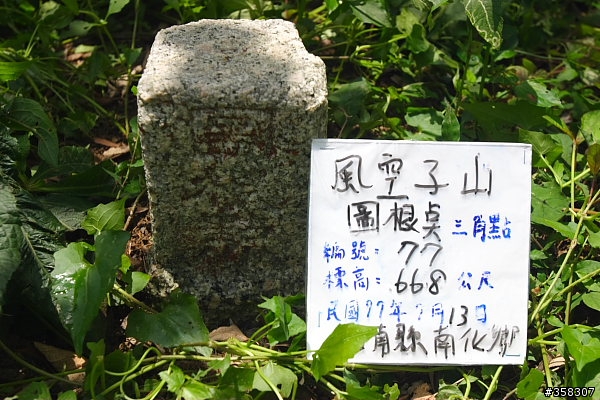 風空子山
圖根点 三角點
編號：77
標高：668 公尺
民國99年7月13日
南縣南化鄉
#358307